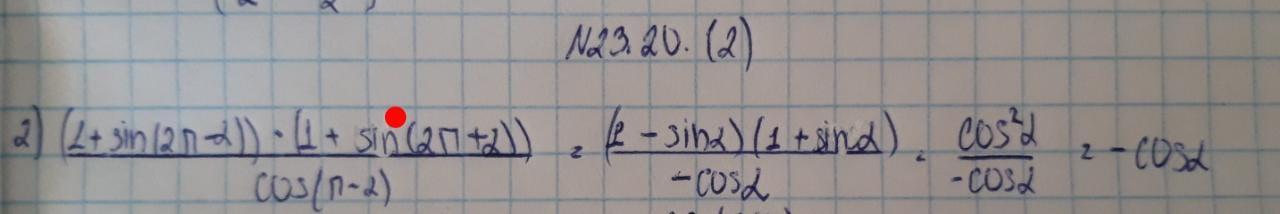 N23.20. (2)
2) (1+sin(2π-α))·(1 + sin(2π+α)) / cos(π-α) = (1 - sinα)(1 + sinα) / -cosα = cos²α / -cosα = -cosα